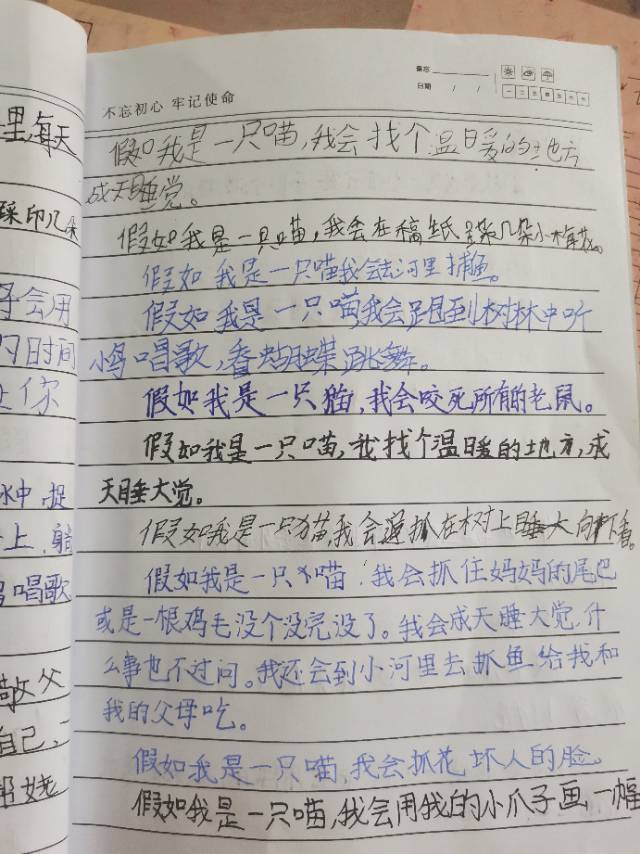 里,每天
踩印几朵
子会用
的时间
让你
水中,捉
上,躺
唱歌
敬父
自己,
帮姥
不忘初心 牢记使命
备忘
日期 / /
一 二 三 四 五 六 七
假如我是一只喵,我会找个温暖的地方
成天睡觉。
假如我是一只喵,我会在稿纸踩几朵小梅花。
假如我是一只喵我会去河里捕鱼。
假如我是一只喵,我会跑到树林中听
小鸟唱歌,看蝴蝶跳舞。
假如我是一只猫,我会咬死所有的老鼠。
假如我是一只喵,我找个温暖的地方,成
天睡大觉。
假如我是一只猫,我会抓在树上睡大向下看。
假如我是一只小喵,我会抓住妈妈的尾巴
或是一根鸡毛没个没完没了。我会成天睡大觉,什
么事也不过问。我还会到小河里去抓鱼给我和
我的父母吃。
假如我是一只喵,我会抓花坏人的脸
假如我是一只喵,我会用我的小爪子画一幅